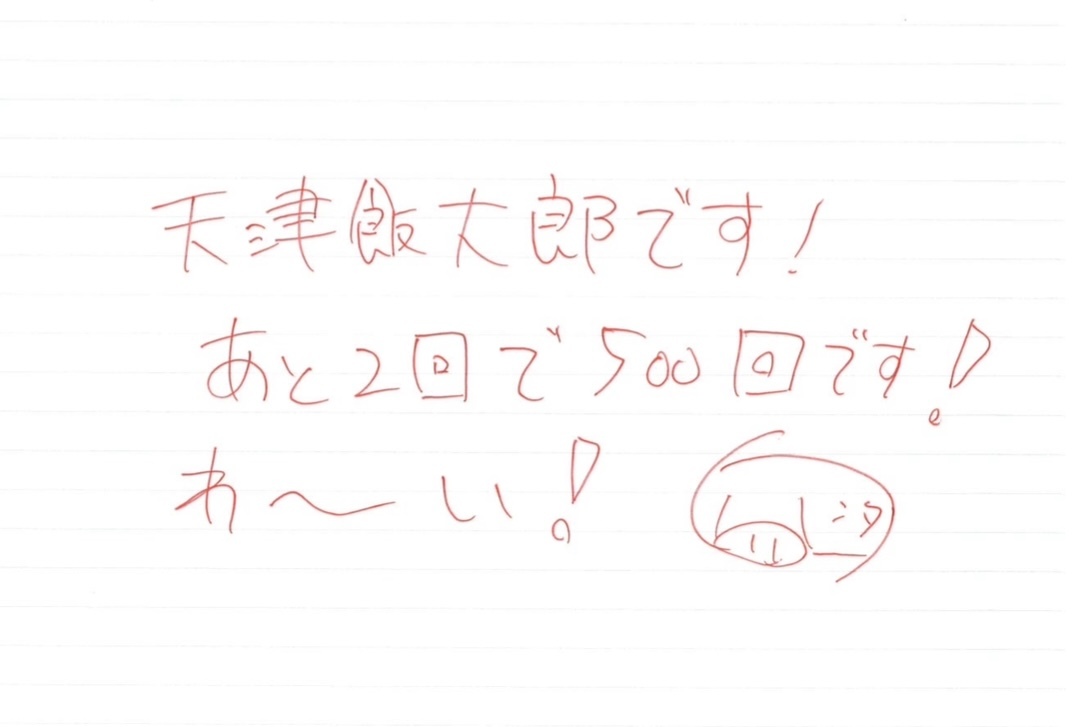 天津飯大郎です!
あと2回で500回です!
わ〜い!